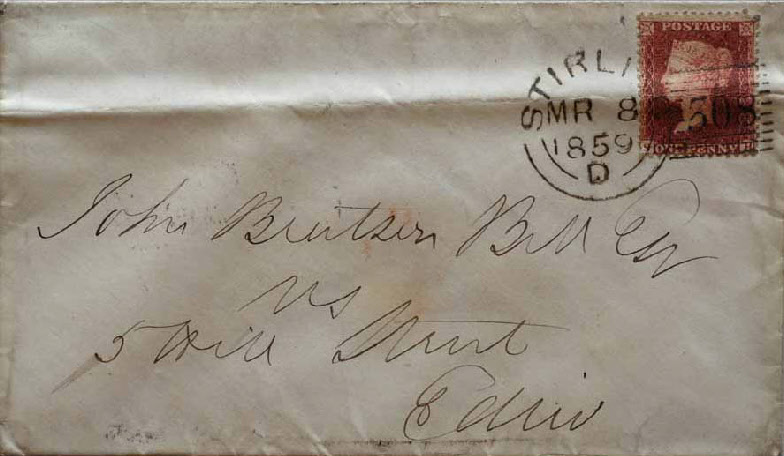 POSTAGE
ONE PENNY
STIRLI
MR 8
1859
D
308
John Beatson Bell Esq
WS
5 Hill Street
Edinr